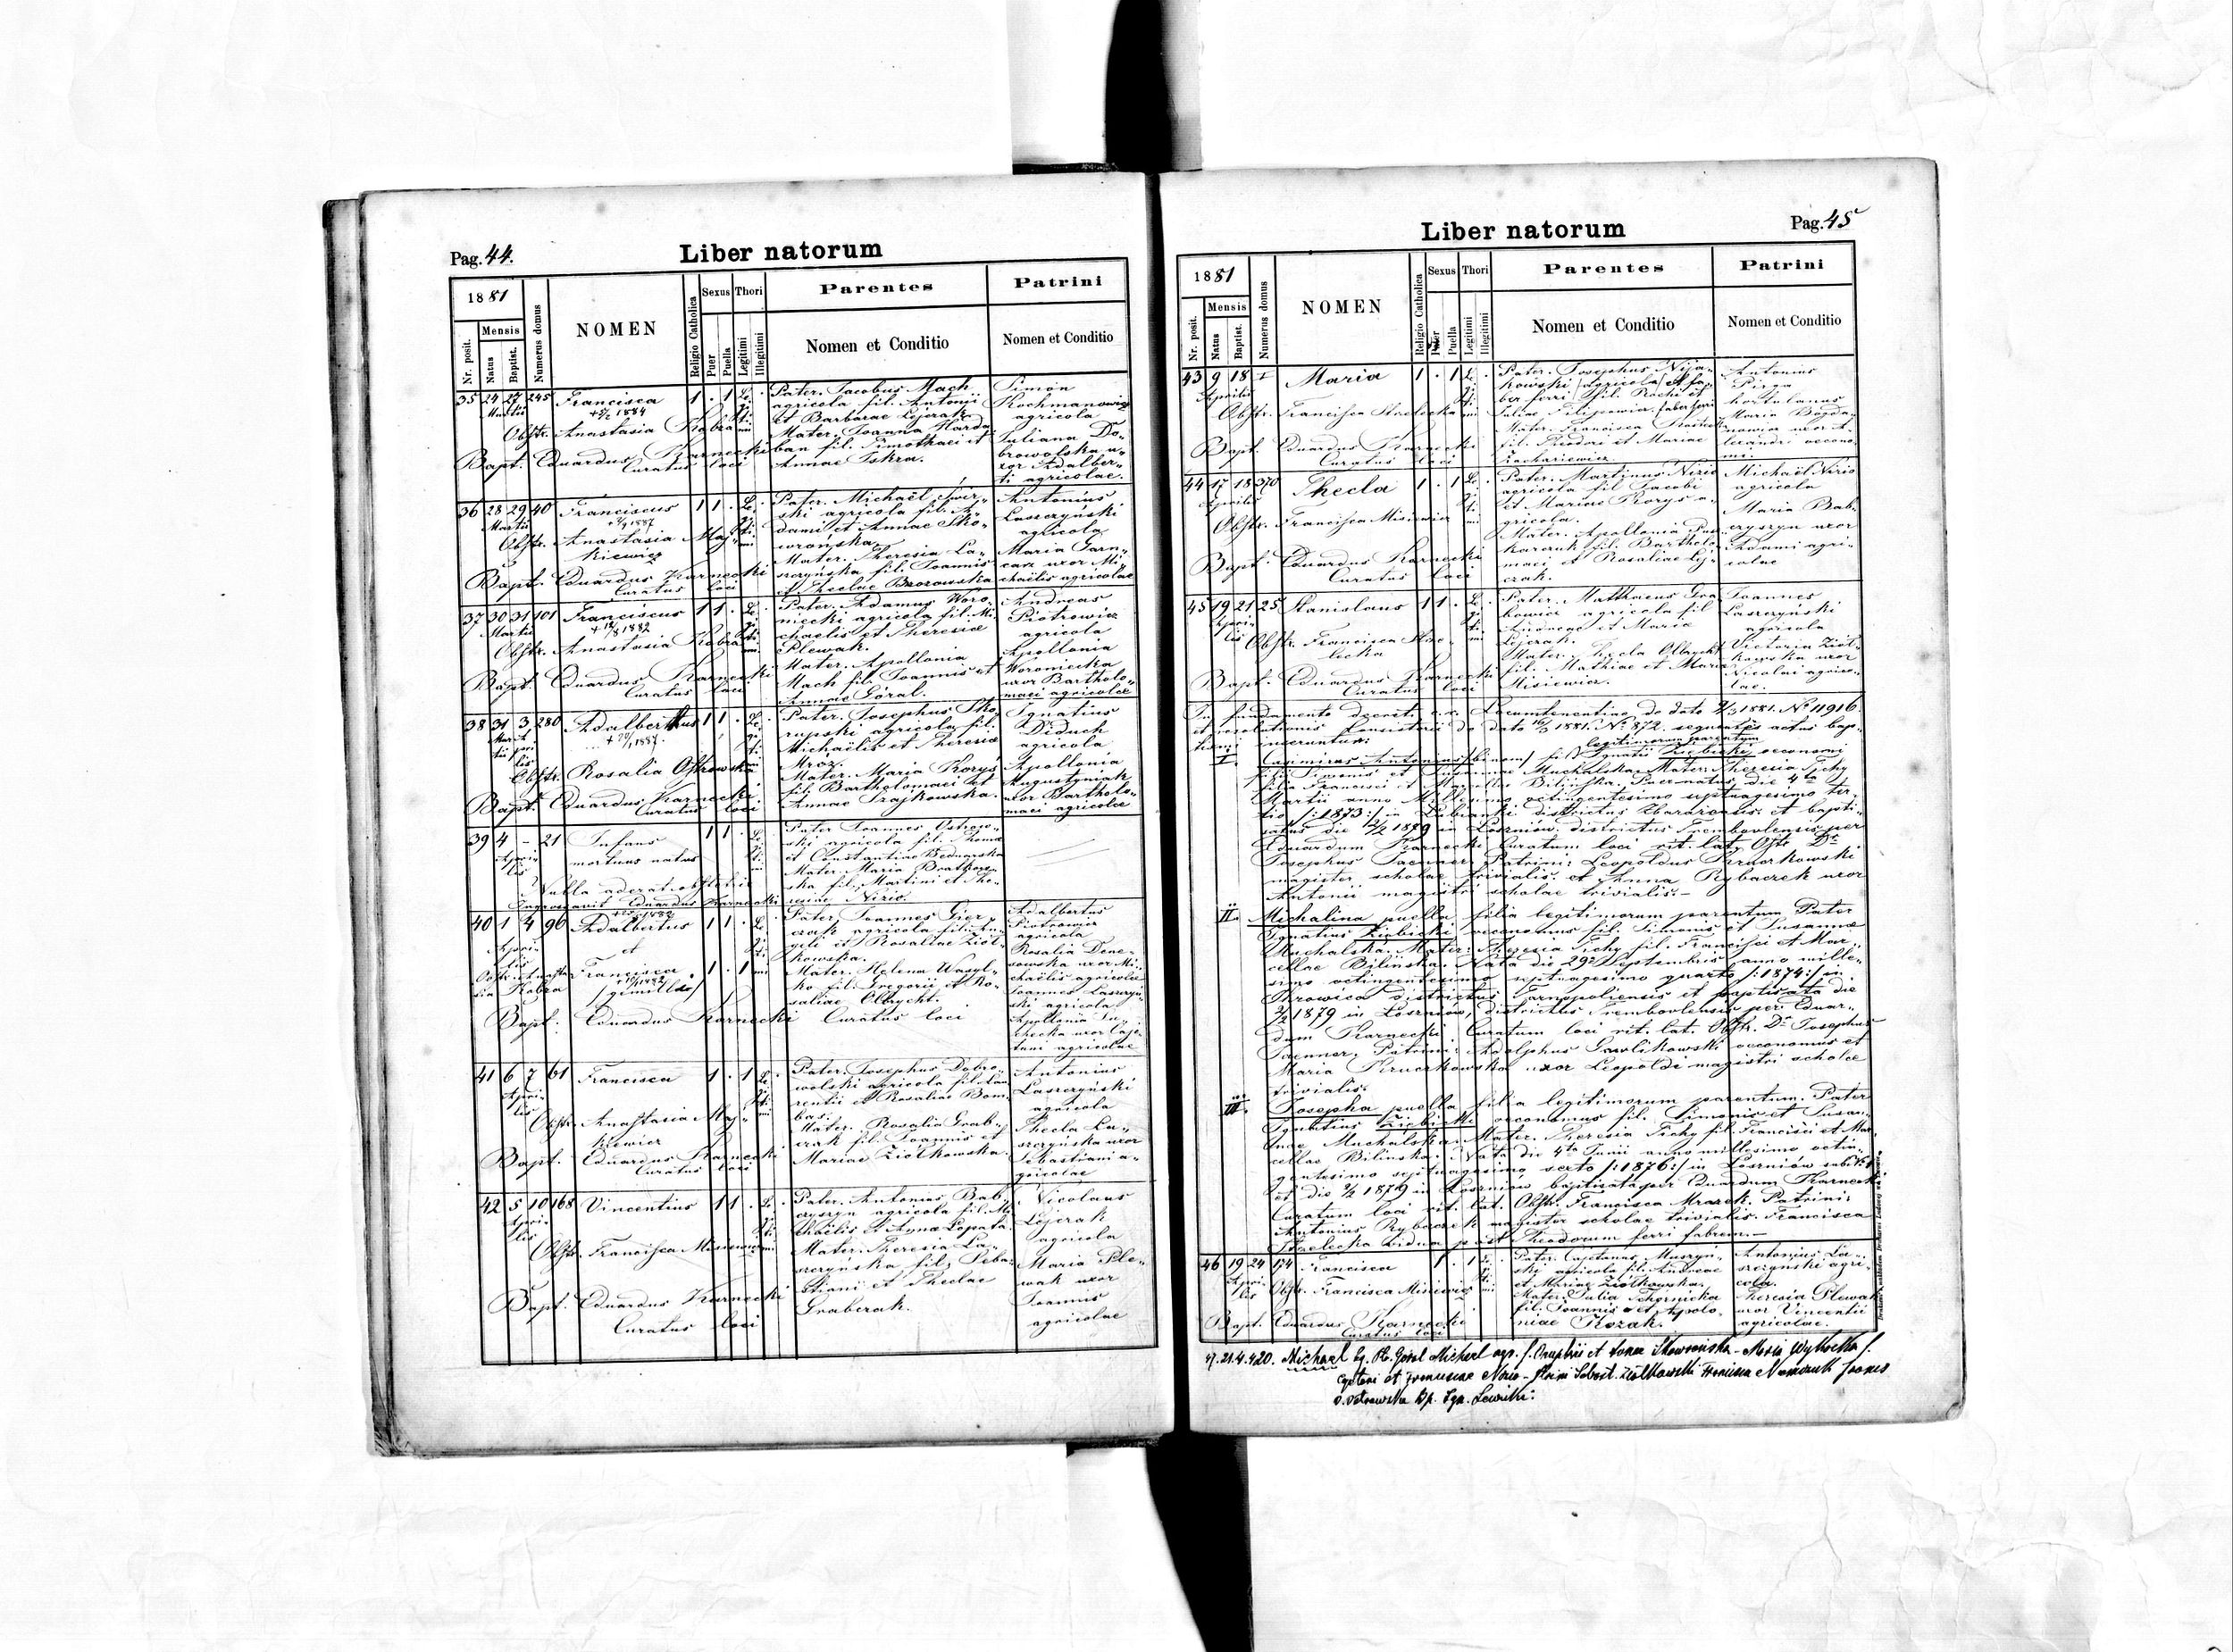 Pag. 44.
Liber natorum
1881
Nr. posit.
Mensis
Natus
Baptist.
Numerus domus
NOMEN
Religio Catholica
Sexus
Puer
Puella
Thori
Legitimi
Illegitimi
Parentes
Nomen et Conditio
Patrini
Nomen et Conditio
35 24 27 245 Francisca 1 . 1
Martii
Obstr. Anastasia Kobra
Bapt. Eduardus Karnecki
Curatus loci
Pater. Jacobus Mach
agricola fil. Antonii
et Barbarae Lejerak
Mater. Joanna Harda
ban fil. Timothaei et
Annae Iskra.
Simon
Kochmanowicz
agricola
Juliana Do-
browolska u-
xor Adalber-
ti agricolae.
36 28 29 40 Franciscus 1 1 .
Martii
Obstr. Anastasia Maj-
kiewicz
Bapt. Eduardus Karnecki
Curatus loci
Pater. Michaël Świr-
ski agricola fil. A-
dami et Annae Sko-
wrońska
Mater. Theresia La-
szczyńska fil. Joannis
et Theclae Brzozowska
Antonius
Laszczyński
agricola
Maria Garn-
carz uxor Mi-
chaëlis agricolae
37 30 31 101 Franciscus 1 1 .
Martii
Obstr. Anastasia Kobra
Bapt. Eduardus Karnecki
Curatus loci
Pater. Adamus Woro
niecki agricola fil. Mi
chaelis et Theresiae
Plewak.
Mater. Apollonia
Mach fil. Joannis et
Annae Góral.
Andreas
Piotrowicz
agricola
Apollonia
Woroniecka
uxor Bartholo-
maei agricolae
38 31 3 280 Adalbertus 1 1 .
Obstr. Rosalia Ostrowska
Bapt. Eduardus Karnecki
Curatus loci
Pater. Josephus Sko-
rupski agricola fil.
Michaëlis et Theresiae
Mroz.
Mater. Maria Koryś
fil. Bartholomaei et
Annae Czajkowska.
Ignatius
Diduch
agricola
Apollonia
Augustyniak
uxor Bartholo-
maei agricolae
39 4 - 21 Infans 1 1 .
mortuus natus
Nulla aderat obstetrix
Ingrossavit Eduardus Karnecki
Pater Joannes Ostrow-
ski agricola fil. Thomae
et Constantiae Bednarska
Mater. Maria Bratkow-
ska fil. Martini et
Nizio.
40 1 4 96 Adalbertus 1 1 .
et
Francisca 1 . 1
/gimelli/
Bapt. Eduardus Karnecki Curatus loci
Pater. Joannes Gier-
czak agricola fil. An-
geli et Rosaliae Ziół-
kowska.
Mater. Helena Wasyl-
ko fil. Gregorii et Ro-
saliae Olbrycht.
Adalbertus
Piotrowicz
agricola
Rosalia Dene-
sowska uxor Mi-
chaëlis agricolae
Joannes Laszczyń-
ski agricola
Apollonia
uxor Caje-
tani agricolae
41 6 7 61 Francisca 1 . 1
Obstr. Anastasia Maj-
kiewicz
Bapt. Eduardus Karnecki
Curatus loci
Pater. Josephus Dobro-
wolski agricola fil. Lau
rentii et Rosaliae Bom
bas.
Mater. Rosalia Grab-
czak fil. Joannis et
Mariae Ziółkowska.
Antonius
Laszczyński
agricola
Thecla La-
szczyńska uxor
Sebastiani a-
gricolae
42 5 10 168 Vincentius 1 1 .
Obstr. Francisca Misiewicz
Bapt. Eduardus Karnecki
Curatus loci
Pater. Antonius Bab-
czyszyn agricola fil. Mi
chaëlis et Annae Łopata.
Mater. Theresia La-
szczyńska fil. Seba-
stiani et Theclae
Grabczak.
Nicolaus
Lejerak
agricola
Maria Ple-
wak uxor
Joannis
agricolae
Liber natorum
Pag. 45
1881
Nr. posit.
Mensis
Natus
Baptist.
Numerus domus
NOMEN
Religio Catholica
Sexus
Puer
Puella
Thori
Legitimi
Illegitimi
Parentes
Nomen et Conditio
Patrini
Nomen et Conditio
43 9 18 Maria 1 . 1
Aprilis
Obstr. Francisca Strelecka
Bapt. Eduardus Karnecki
Curatus loci
Pater. Josephus
kowski
ber ferri
Juliae Filipowicz
Mater. Francisca
fil. Theodori et Mariae
Zachariewicz.
Antonius
Pirga
hortulanus
Maria Bogda-
nowicz uxor A-
lexandri oecono-
mi.
44 17 18 370 Thecla 1 . 1
Aprilis
Obstr. Francisca Misiewicz
Bapt. Eduardus Karnecki
Curatus loci
Pater. Martinus Nizio
agricola fil Jacobi
et Mariae Korys a-
gricola.
Mater. Apollonia
fil. Bartholo-
maei et Rosaliae Lej-
erak.
Michaël Nizio
agricola
Maria Bab-
czyszyn uxor
Adami agri-
colae
45 19 21 25 Stanislaus 1 1 .
Obstr. Francisca Stre-
lecka
Bapt. Eduardus Karnecki
Curatus loci
Pater. Matthaeus
agricola fil
Andreae et Maria
Lejerak.
Mater. Thecla Olbrycht
fil. Mathiae et Maria
Misiewicz.
Joannes
Laszczyński
agricola
Victoria Ziół-
kowska uxor
Nicolai agrico-
lae.
In fundamento decreti c.r. Locumtenentiae de dato 1881. No 11916
et resolutionis Consistorii de dato 1881. No 872. sequentes actus bap-
tismi inseruntur:
legitimorum parentum
I. Casimirus Antonius /binom/ fil Ignatii Ziębicki oeconomi
fil. Simonis et Susannae Muchalska. Mater: Theresia Tichy
filia Francisci et Marcellae Bilińska. Puer natus die 4ta
Martii anno Millesimo octingentesimo septuagesimo ter-
tio /:1873:/ in Lubianki districtus Zbarażensis et bapti-
satus die 1879 in Łoszniów districtus Trembovlensis per
Eduardum Karnecki Curatum loci rit. lat. Obstr. Dr
Josephus Taenner. Patrini: Leopoldus Kruczkowski
magister scholae trivialis et Anna Rybaczek uxor
Antonii magistri scholae trivialis.-
II. Michalina puella filia legitimorum parentum Pater
Ignatius Ziębicki oeconomus fil. Simonis et Susannae
Muchalska. Mater: Theresia Tichy fil. Francisci et Mar-
cellae Bilińska. Nata die 29 Septembris anno mille-
simo octingentesimo septuagesimo quarto /:1874:/ in
Krowica districtus Tarnopoliensis et baptisata die
2/2 1879 in Łoszniów districtus Trembovlensis per Eduar-
dum Karnecki Curatum loci rit. lat. Obstr. Dr Josephus
Taenner. Patrini: Adolphus Gawlikowski oeconomus et
Maria Kruczkowska uxor Leopoldi magistri scholae
trivialis.
III. Josepha puella filia legitimorum parentum. Pater
Ignatius Ziębicki oeconomus fil. Simonis et Susan-
nae Muchalska. Mater. Theresia Tichy fil. Francisci et Mar-
cellae Bilinska. Nata die 4ta Junii anno millesimo octin-
gentesimo septuagesimo sexto /:1876:/ in Łoszniów
et die 2/2 1879 in Łoszniów baptisata per Eduardum Karnecki
Curatum loci rit. lat. Obstr. Francisca Mrozek. Patrini:
Antonius Rybaczek magister scholae trivialis. Francisca
Strzelecka vidua post Theodorum ferri fabrem.-
46 19 24 174 Francisca 1 . 1
Obstr. Francisca Misiewicz
Bapt. Eduardus Karnecki
Curatus loci
Pater. Cajetanus Muszyń-
ski agricola fil. Andreae
et Mariae Ziółkowska.
Mater. Julia
fil. Joannis et Apolo-
niae Kozak.
Antonius La-
szczyński agri-
cola.
Theresia Plewak
uxor Vincentii
agricolae.
Michael Góral Michael agr. f. Onuphrii et Annae Skowrońska - Maria f.
Cajetani et Franciscae Nizio - Sebast. Ziółkowski Francisca
O. Ostrowska Bp. Ign.